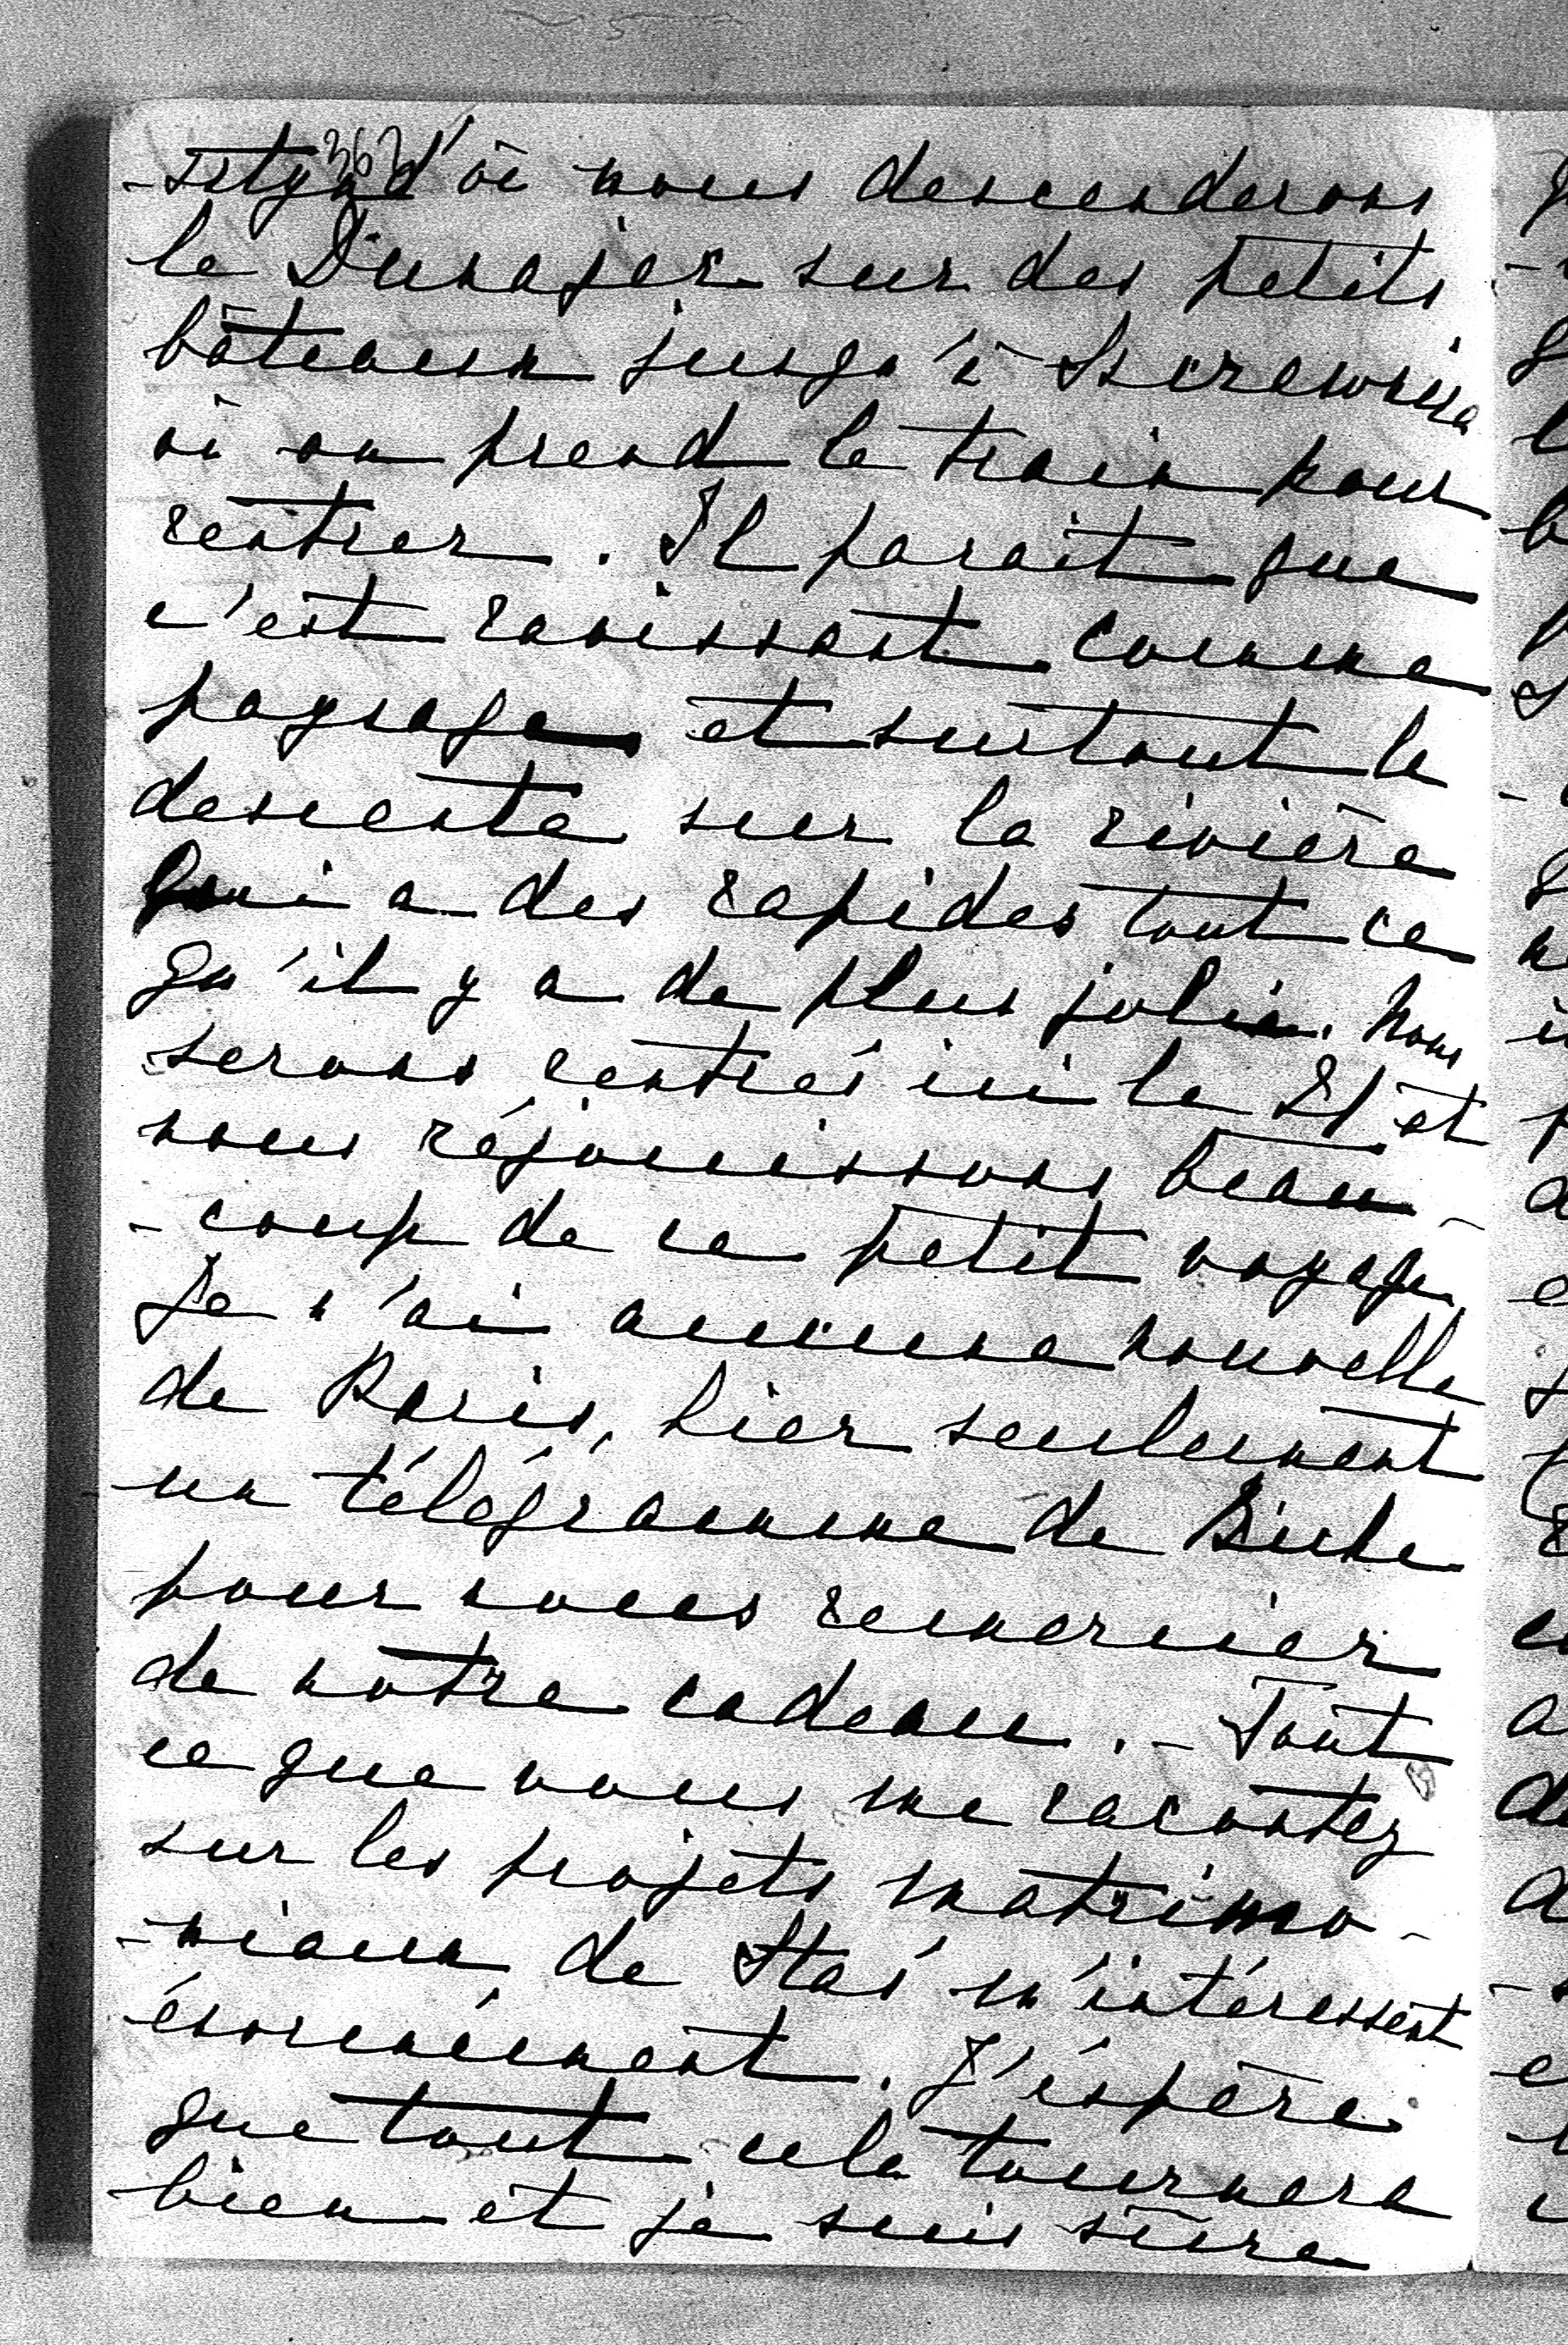 367
-sztyn d'où nous descenderons
le Dunajec sur des petits
bâteaux jusqu'à Szczawnica
où on prend le train pour
rentrer. Il parait que
c'est ravissant comme
paysage et surtout la
descente sur la rivière
qui a des rapides tout ce
qu'il y a de plus joli. Nous
serons rentrés ici le 21 et
nous réjouissons beau-
-coup de ce petit voyage.
Je n'ai aucune nouvelle
de Paris, hier seulement
un télégramme de Biche
pour nous remercier
de notre cadeau. - Tout
ce que vous me racontez
sur les projets matrimo-
-niaux de Staś m'intéressent
énormément. J'éspère
que tout cela tournera
bien et je suis sûre